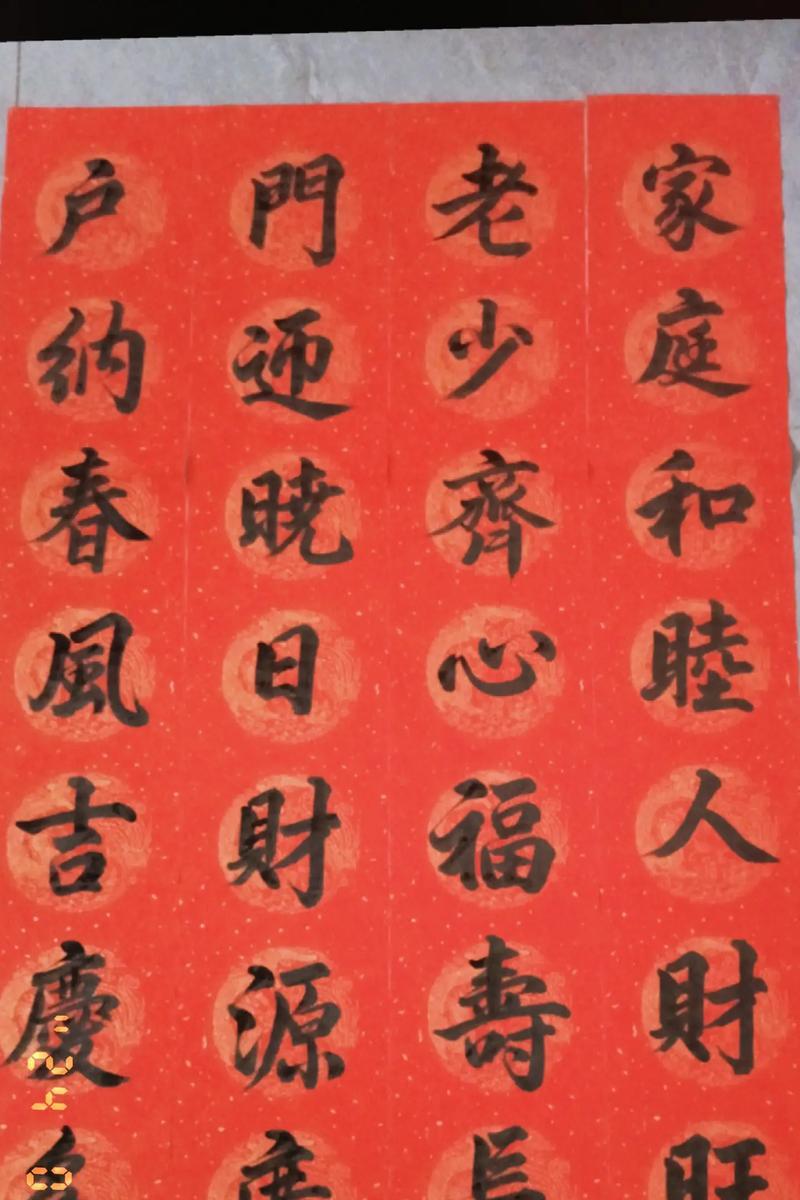 家庭和睦人財旺
老少齊心福壽長
門迎曉日財源廣
户納春風吉慶多